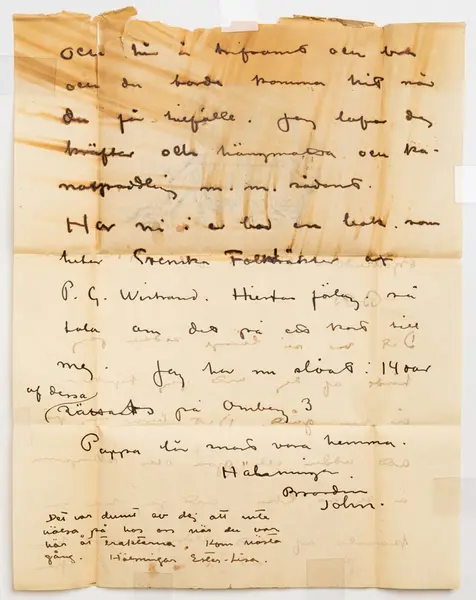 och här är trifsamt och bra
och du borde komma hit när
du får tillfälle. Jag lofvar dig
kräftor och hängmatta och ka-
notpaddling m. m. sådant.
Har ni i er bod en bok som
heter Svenska Folkdräkter af
P. G. Wistrand. Hiertas förlag. så
tala om det på ett kort till
mej. Jag har nu slöat i 14 dar
af dessa
på Omberg 3
Pappa lär snart vara hemma.
Hälsningar
Brodern
John.
Det var dumt av dej att inte
hälsa på hos oss när du var
här åt trakterna. Kom nästa
gång. Hälsningar Ester-Lisa.